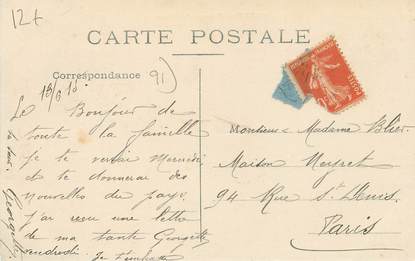 12 €
CARTE POSTALE
Correspondance
91
Le Bonjour de
toute la famille
je te verrai Mercredi
et te donnerai des
Nouvelles du pays.
J'ai reçu une lettre
de ma tante Georgette
vendredi. Je t'embrasse
ta sœur Georgette
Monsieur & Madame
Maison Meyret
94 Rue St Denis.
Paris